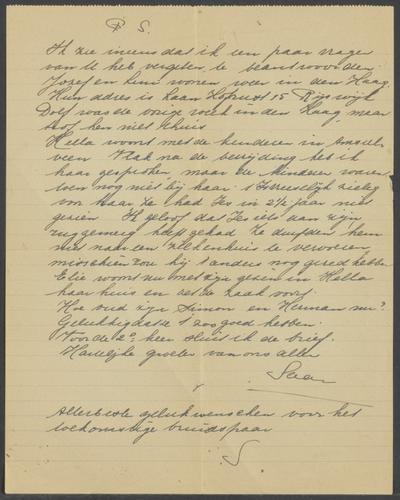 P. S.
Ik zie ineens dat ik een paar vragen
van U heb vergeten te beantwoorden.
Jozef en hun wonen weer in den Haag.
Hun adres is Laan 15 Rijswijk
Dolf was de vorige week in den Haag maar
trof hen niet thuis
Hella woont met de kinderen in Amstel-
veen Vlak na de bevrijding heb ik
haar gesproken maar de kinderen waren
toen nog niet bij haar. 't Is vreeselijk zielig
voor haar. Ze had Jes in 2½ jaar niet
gezien Ik geloof dat Jes iets aan zijn
ruggemerg heeft gehad Ze durfden hem
niet naar een ziekenhuis te vervoeren,
misschien zou hij anders nog gered hebben
Elie woont nu met zijn gezin in Hella
haar huis en zet de zaak voort.
Hoe oud zijn Simon en Herman nu?
Gelukkig dat ze 't zoo goed hebben.
Voor de 2e keer sluit ik de brief.
Hartelijke groeten van ons allen
Saar
Allerbeste gelukwenschen voor het
toekomstige bruidspaar
S